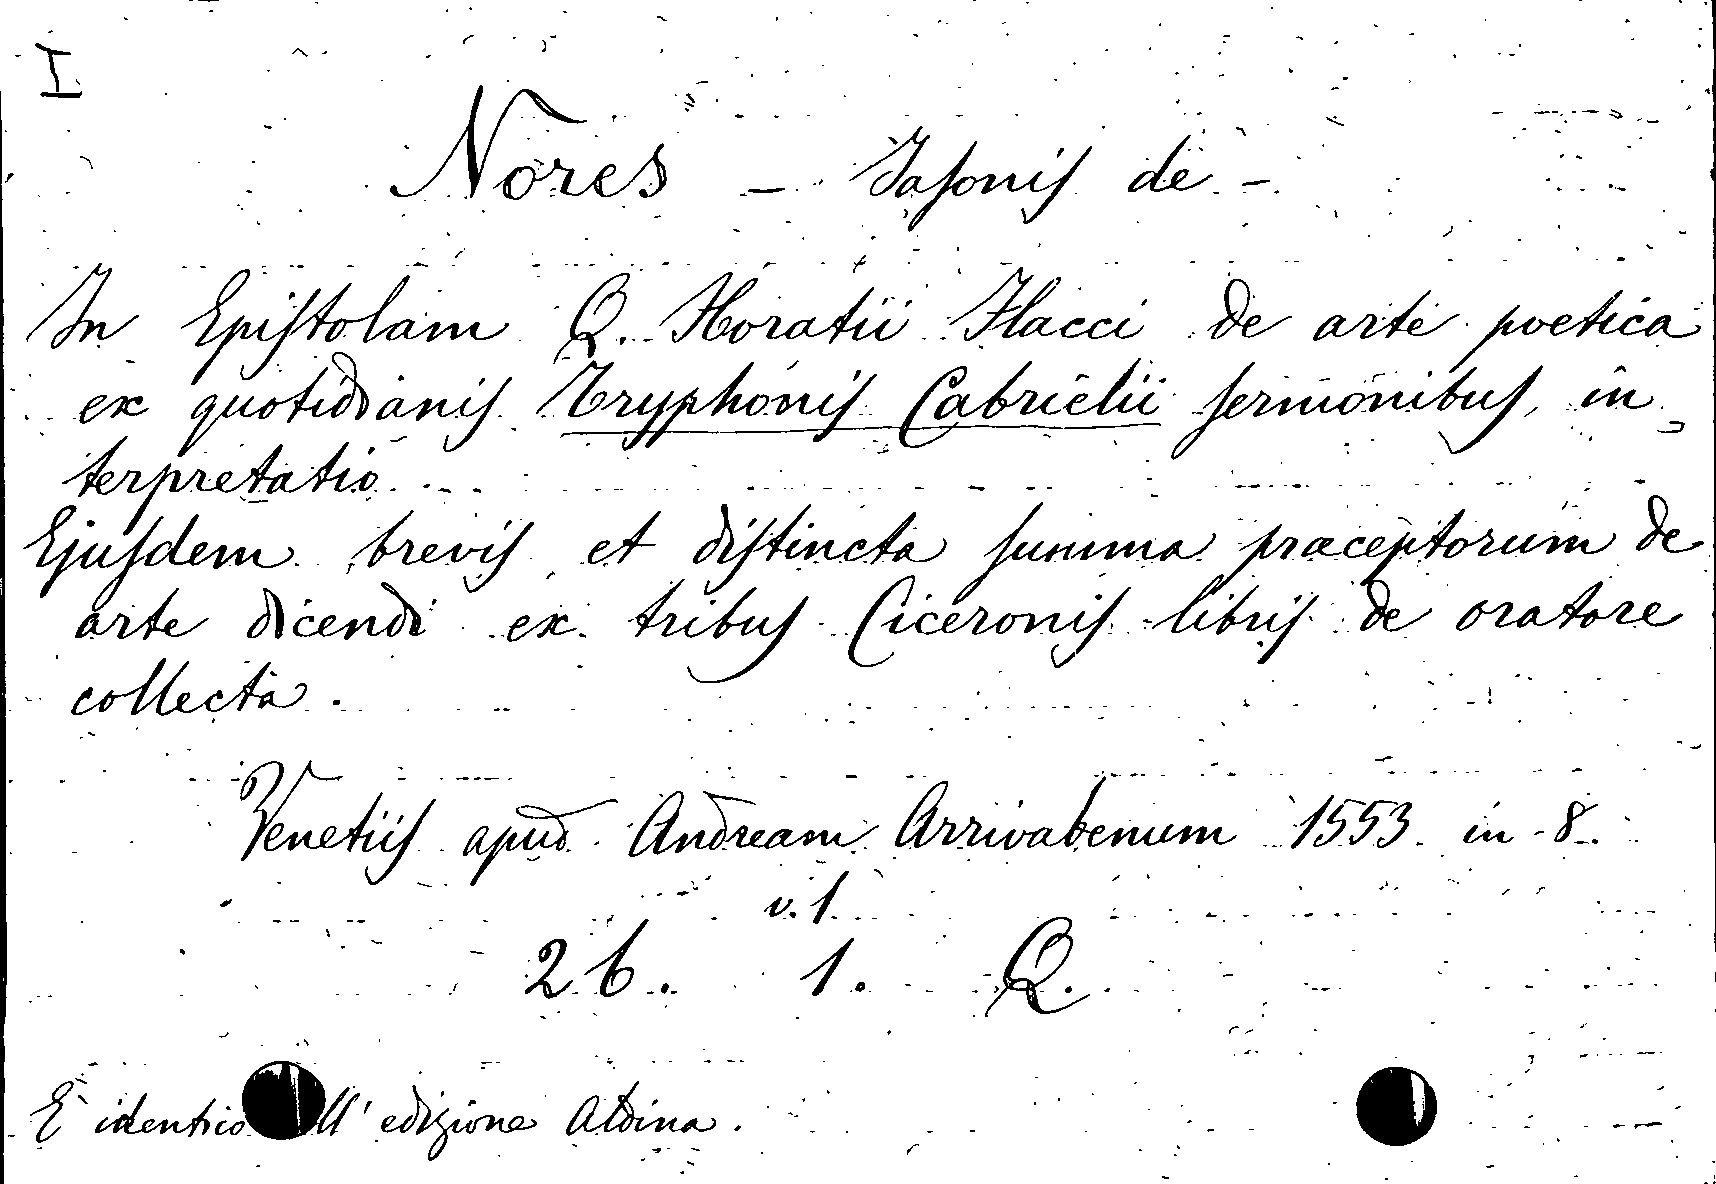 I
Nores – Jasonis de –
In Epistolam Q. Horatii Flacci de arte poetica
ex quotidianis Tryphonis Cabrielii sermonibus, in
terpretatio.
Ejusdem brevis et distincta summa præceptorum de
arte dicendi ex tribus Ciceronis libris de oratore
collecta.
Venetiis apud Andream Arrivabenum 1553 in-8.
v. 1.
26. 1. Q.
È identico ll' edizione Aldina.